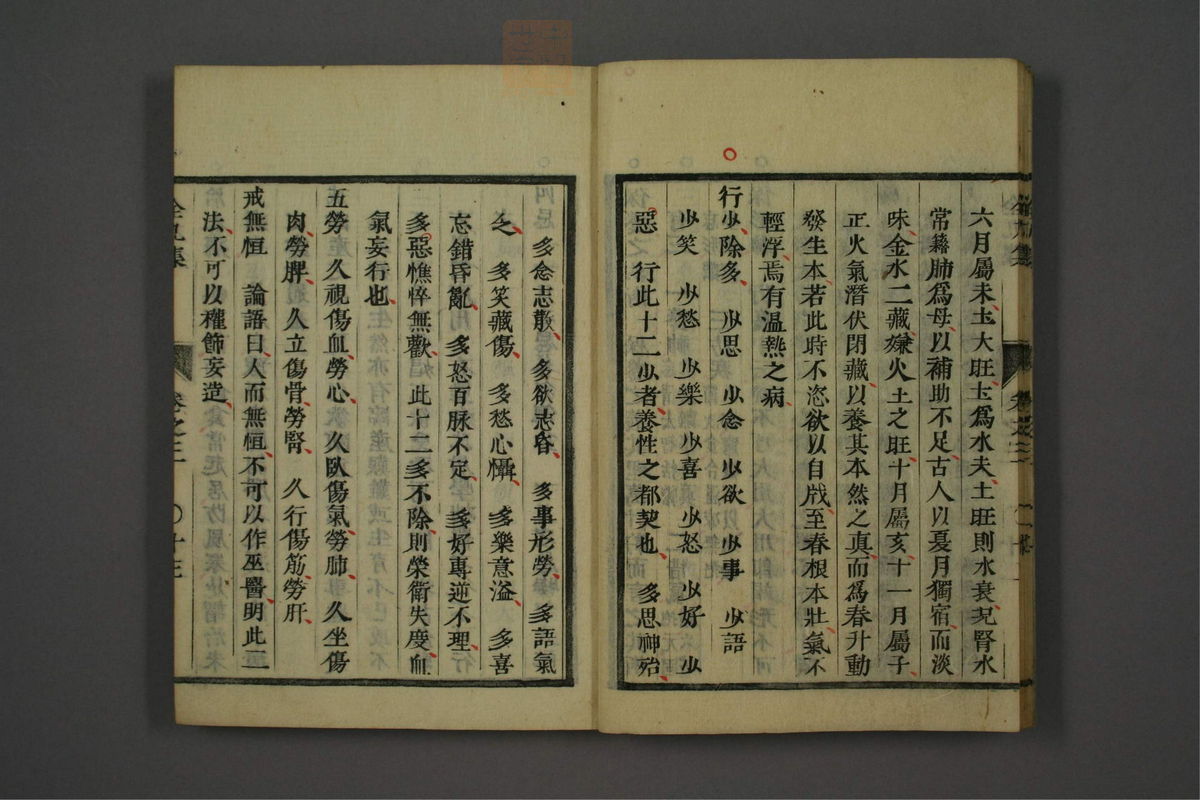 六月屬未土大旺土爲水夫土旺則水衰况腎水
常籍肺爲母以補助不足古人以夏月獨宿而淡
味金水二藏嫌火土之旺十月屬亥十一月屬子
正火氣潛伏閉藏以養其本然之真而爲春升動
發生本若此時不恣欲以自戕至春根本壯氣不
輕浮焉有温熱之病
行少除多　少思　少念　少欲　少事　少語
少笑　少愁　少樂　少喜　少怒　少好　少
惡　行此十二少者養性之都契也　多思神殆
多念志散　多欲志昏　多事形勞　多語氣
乏　多笑藏傷　多愁心懾　多樂意溢　多喜
忘錯昏亂　多怒百脉不定　多好專逆不理
多惡憔悴無歡　此十二多不除則榮衛失度血
氣妄行也
五勞　久視傷血勞心　久臥傷氣勞肺　久坐傷
肉勞脾　久立傷骨勞腎　久行傷筋勞肝
戒無恒　論語曰人而無恒不可以作巫醫明此二
法不可以權飾妄造
卷之三
十三